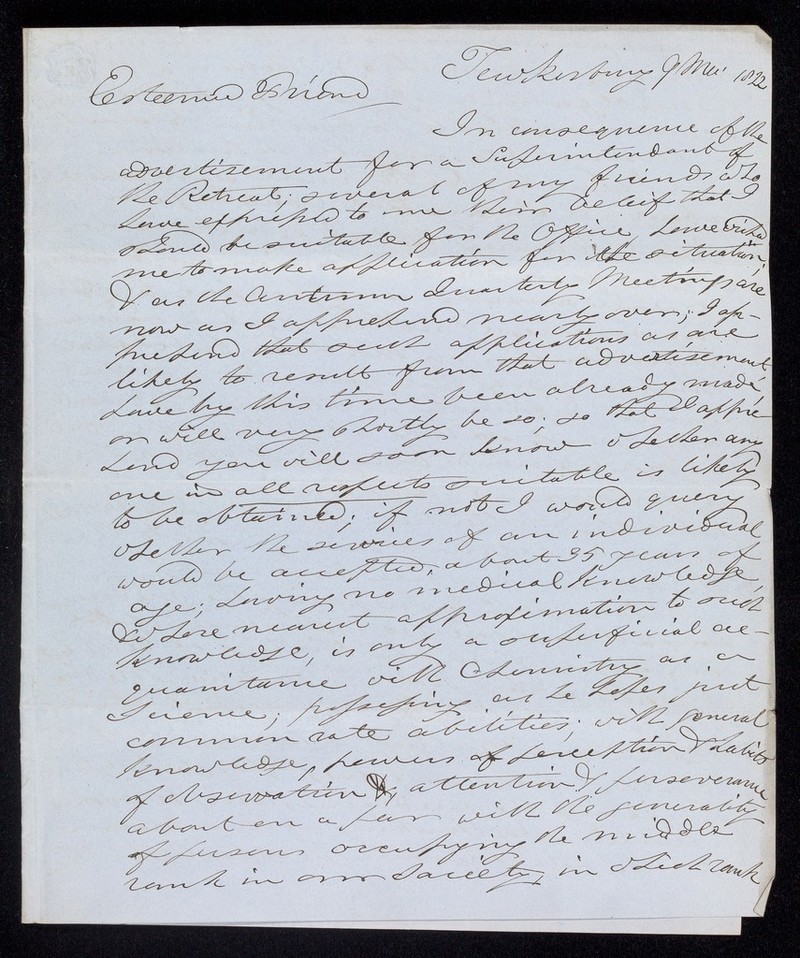 Tewkesbury 9 Mo: 1822
Esteemed Friend
In consequence of the
advertisement for a Superintendant of
the Retreat; several of my friends who
have expressed to me their belief that I
should be suitable for the Office have
me to make application for the situation;
& as the Autumn Quarterly Meetings are
now as I apprehend nearly over; I ap-
prehend that such applications as are
likely to result from that advertisement
have by this time been already made,
or will very shortly be so; so that I appre-
hend you will soon know whether any
one in all respects suitable is likely
to be obtained; if not I would query
whether the services of an individual
would be accepted, about 35 years of
age; having no medical knowledge,
whose nearest approximation to such
knowledge, is only a superficial ac-
quaintance with Chemistry as a
Science; possessing as he hopes just
common rate abilities; with general
knowledge, powers of perception & habits
of observation & attention & perseverance
about on a par with the generality
of persons occupying the middle
rank in our Society, in which rank